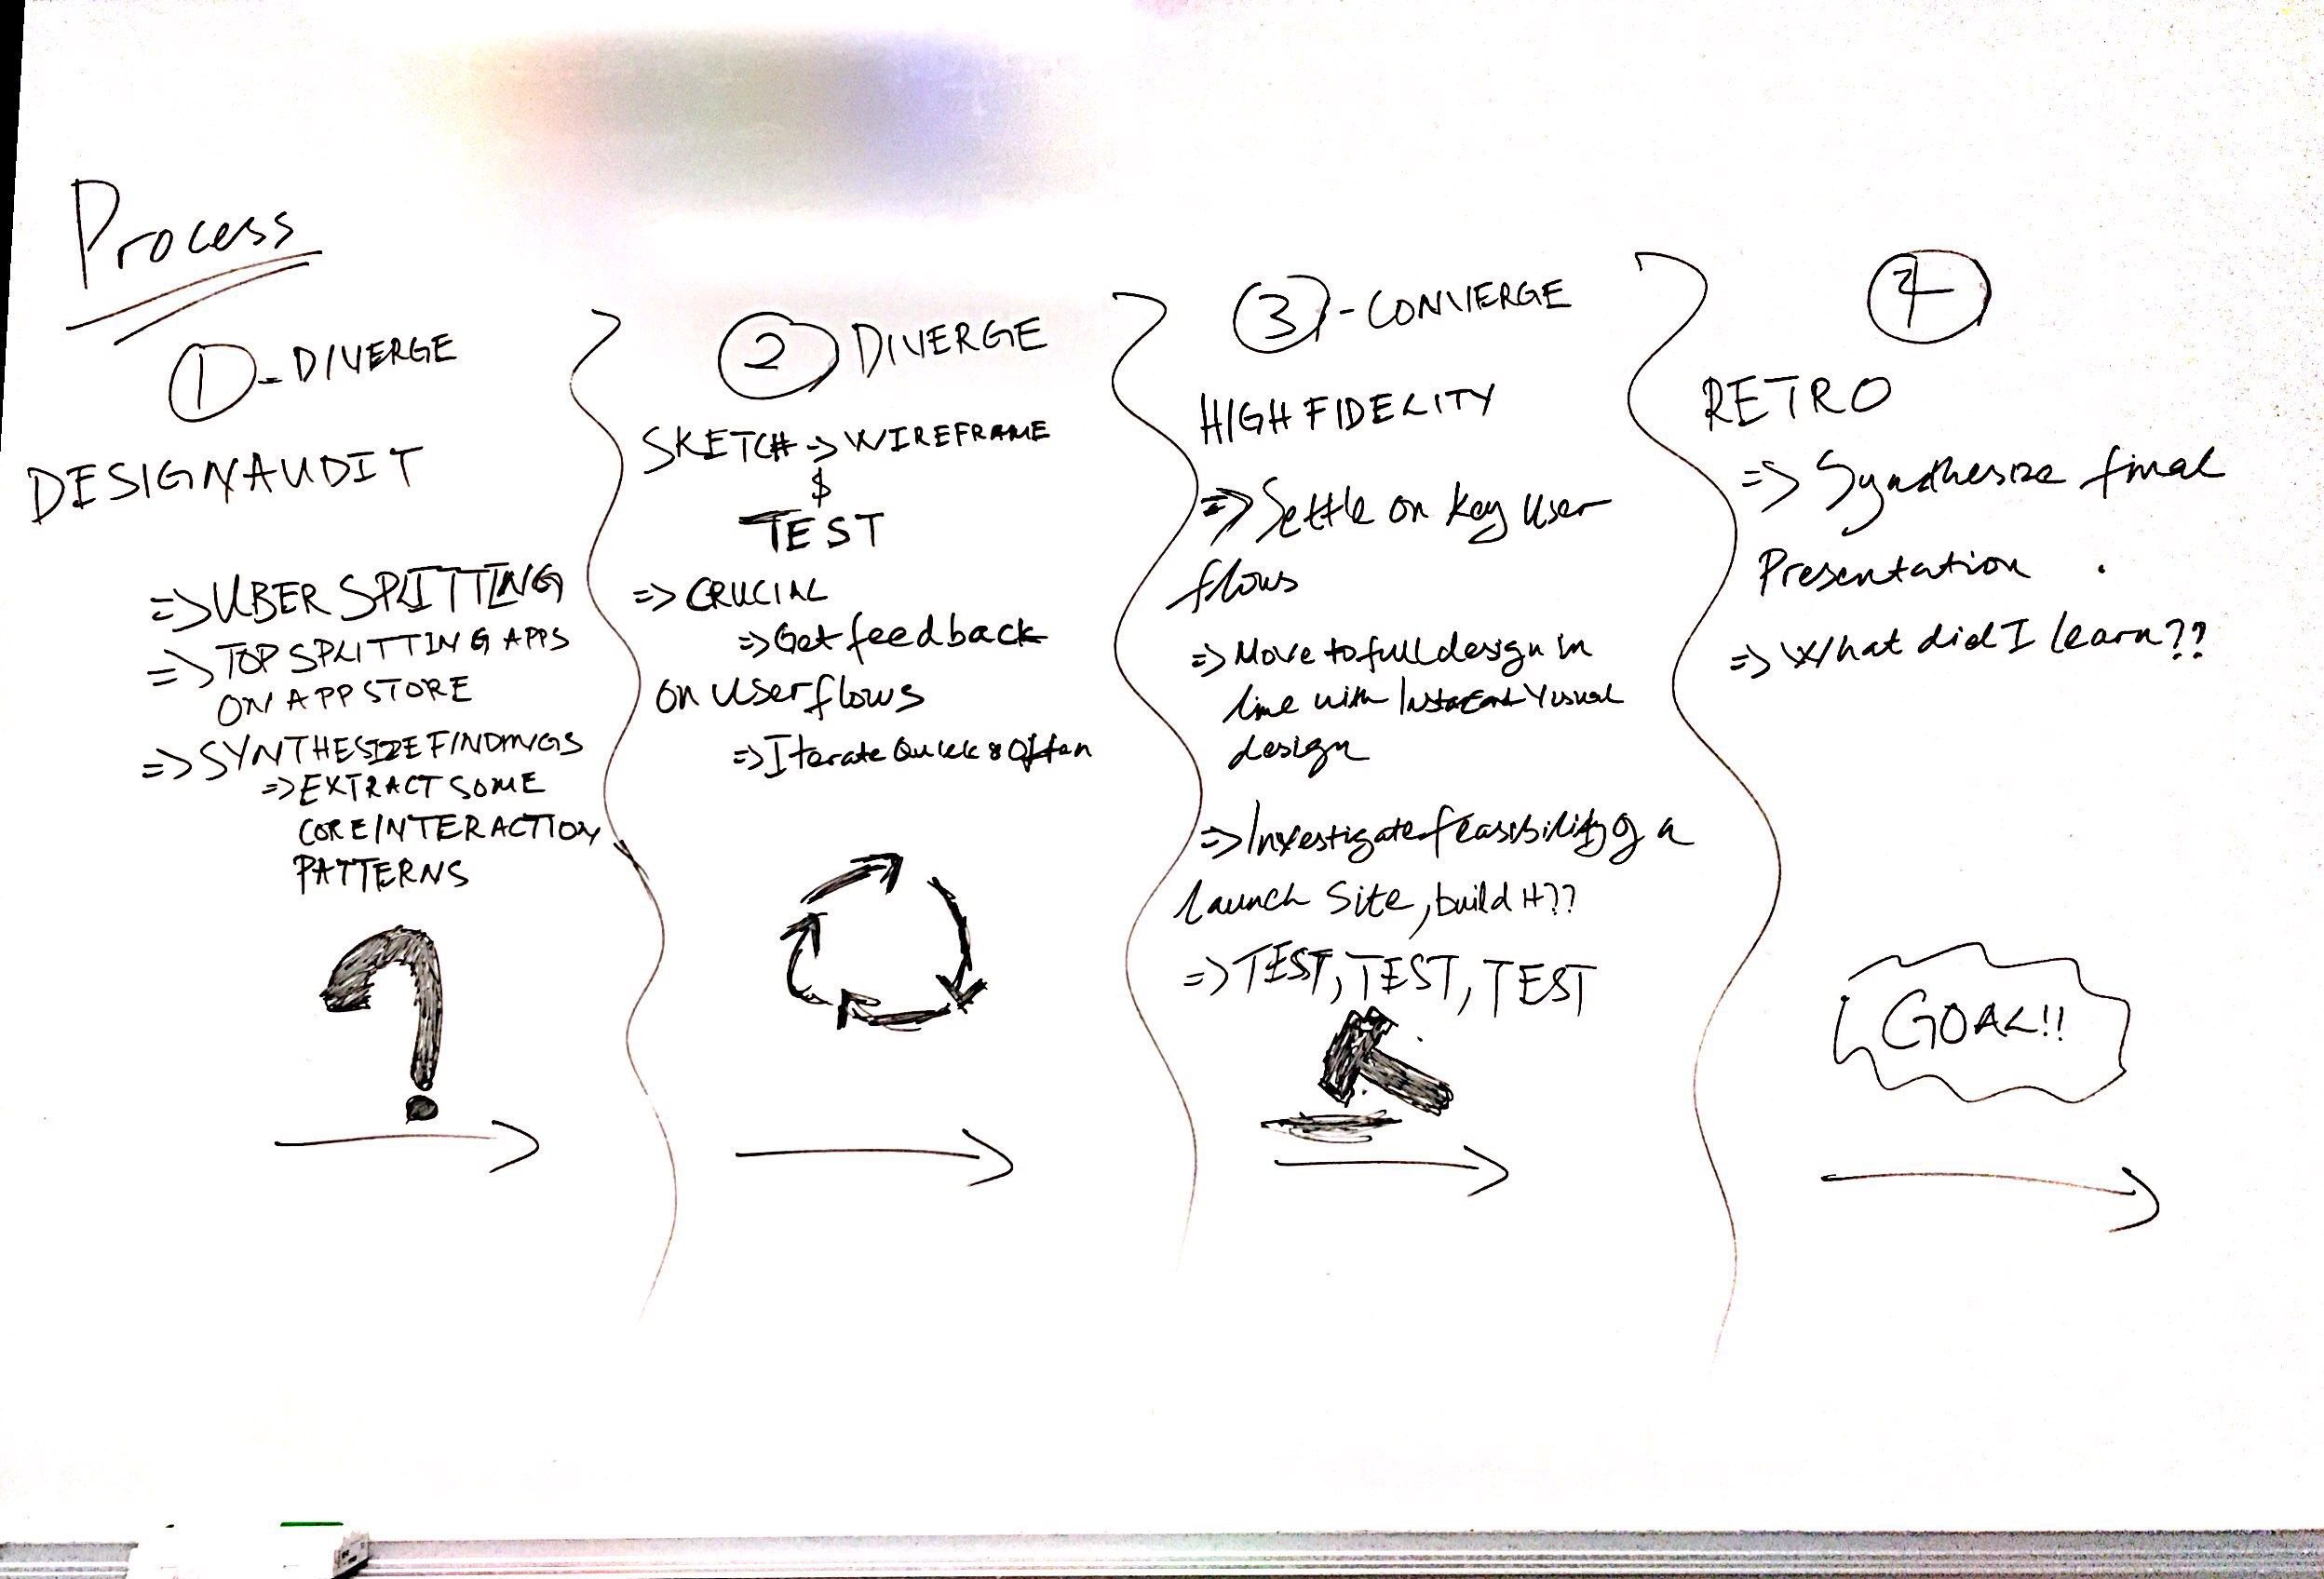 Process
① - DIVERGE
DESIGN AUDIT
=> UBER SPLITTING
=> TOP SPLITTING APPS
ON APP STORE
=> SYNTHESIZE FINDINGS
=> EXTRACT SOME
CORE INTERACTION
PATTERNS
?
② DIVERGE
SKETCH => WIREFRAME
$
TEST
=> CRUCIAL
=> Get feedback
on user flows
=> Iterate Quick & Often
③ - CONVERGE
HIGH FIDELITY
=> Settle on key user
flows
=> Move to full design in
line with Instacart Visual
design
=> Investigate feasibility of a
launch site, build it??
=> TEST, TEST, TEST
④
RETRO
=> Synthesize final
Presentation .
=> What did I learn??
GOAL!!